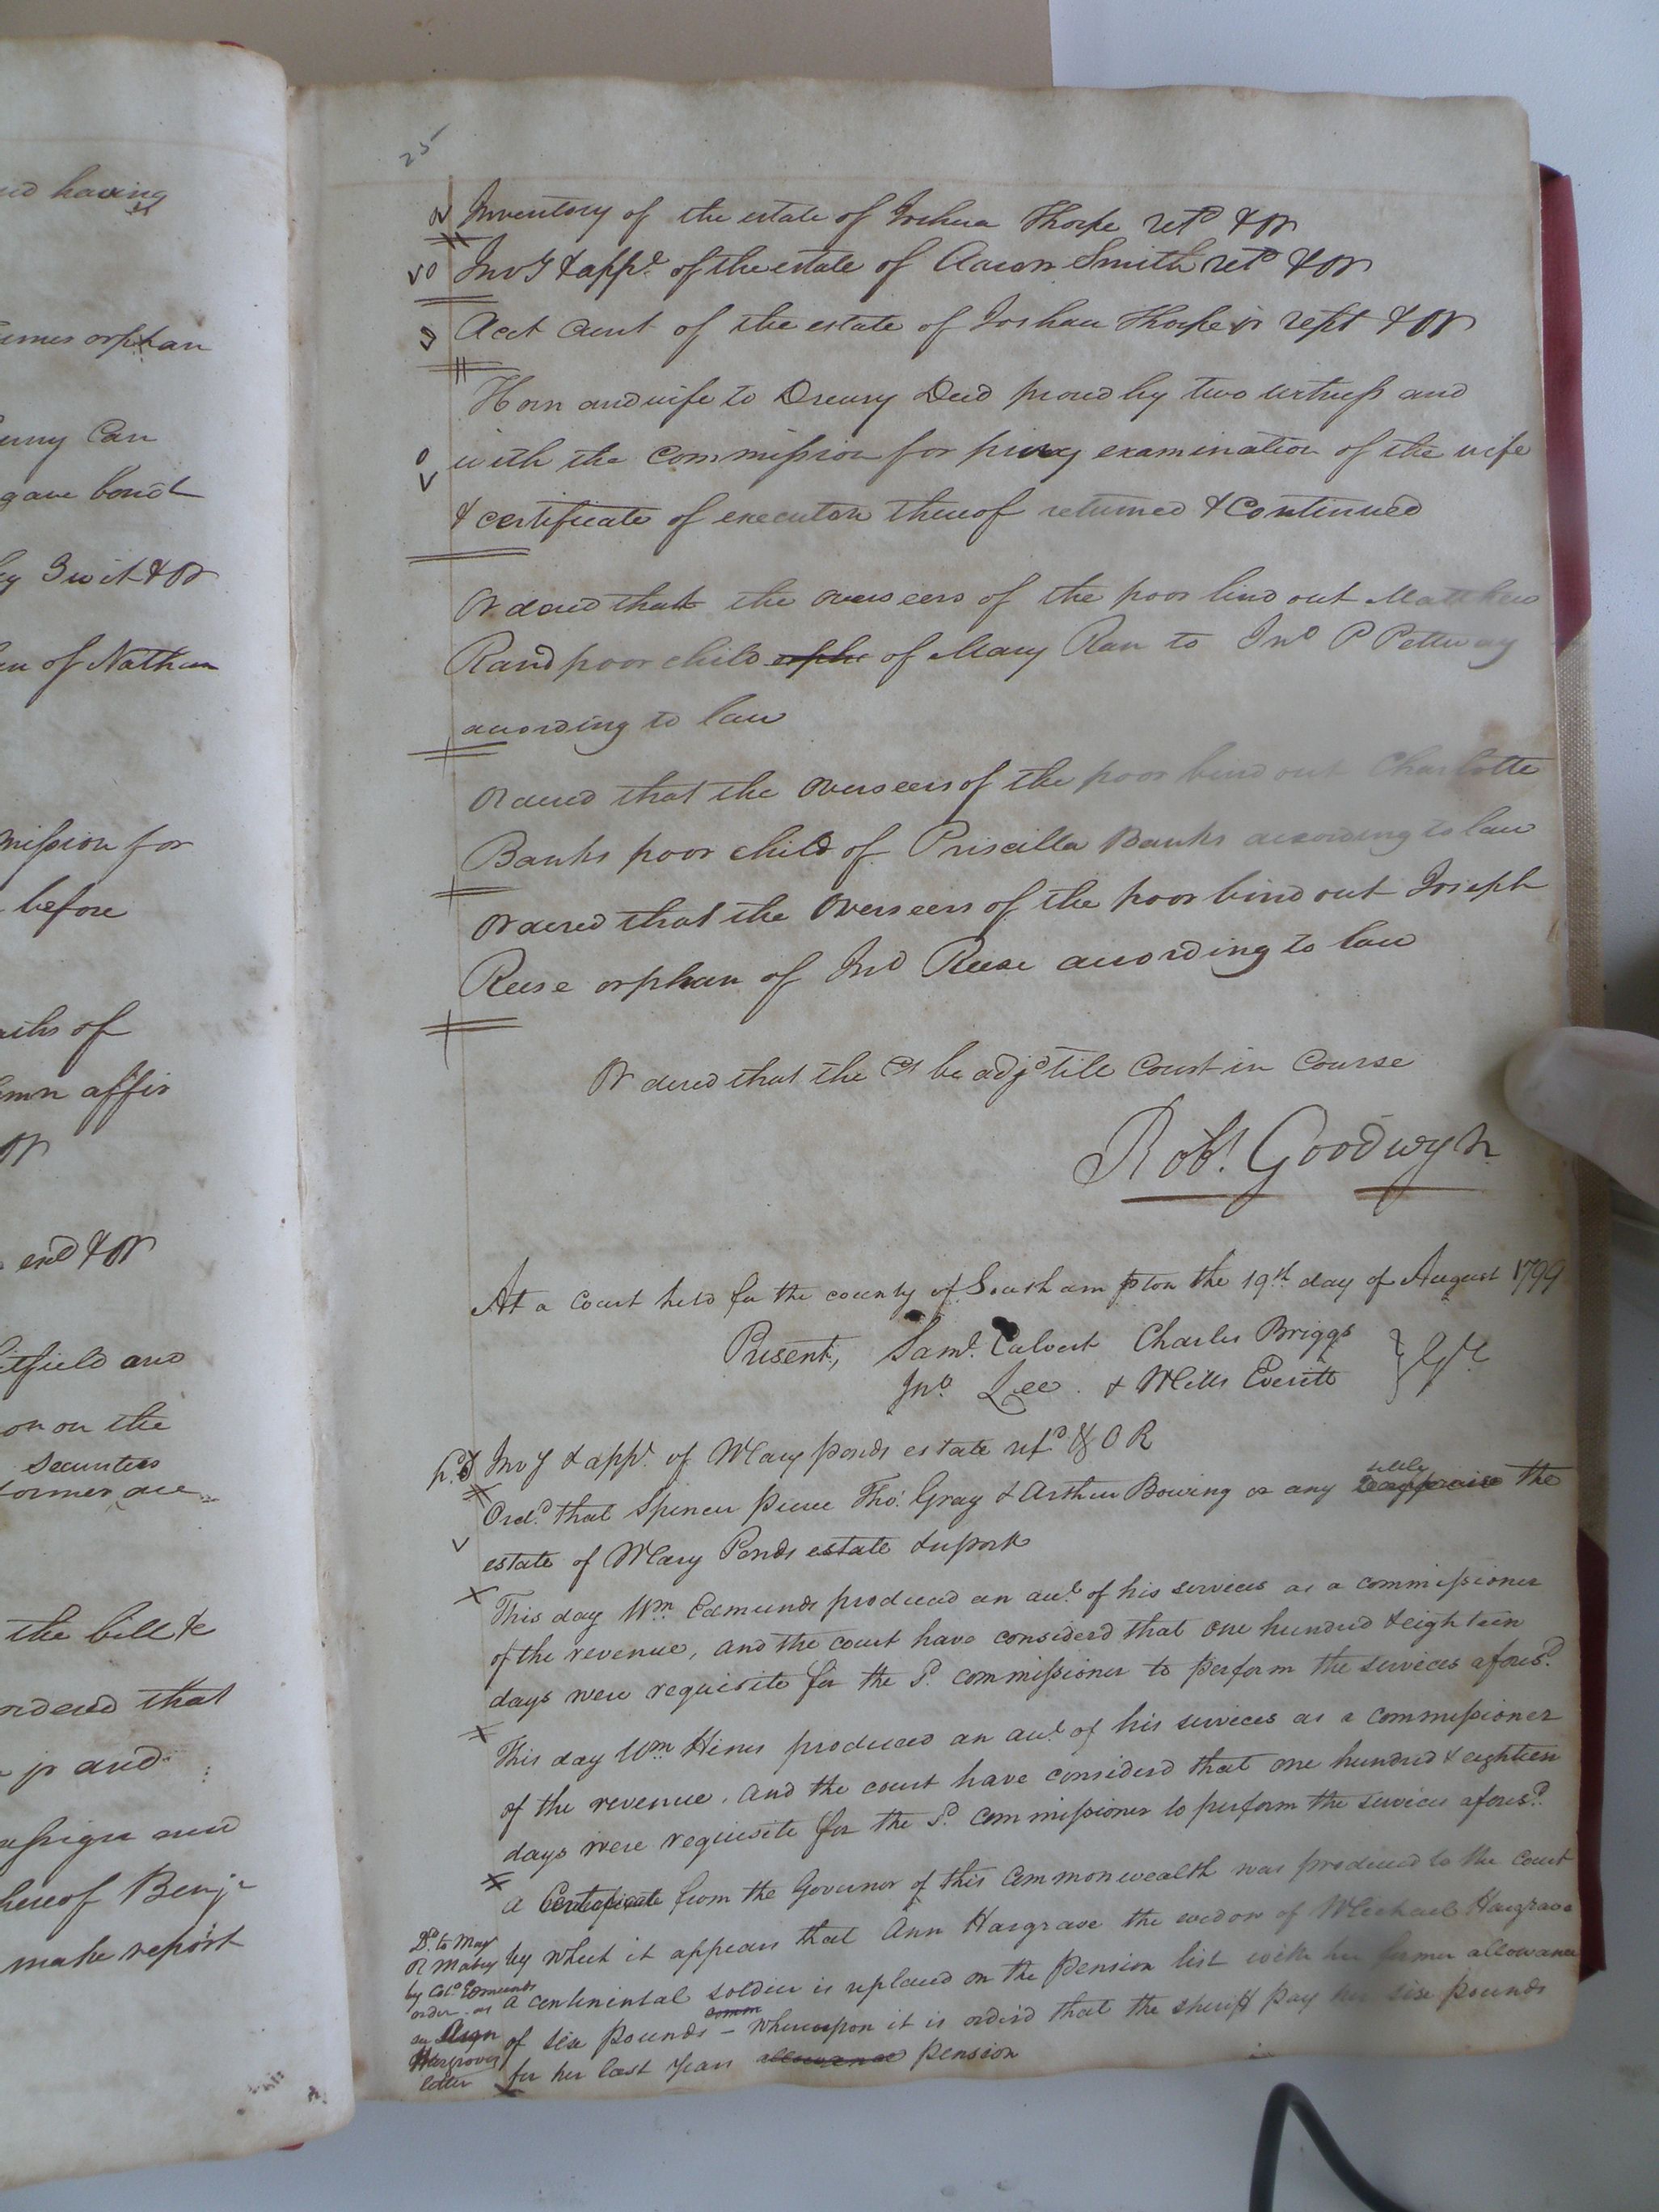 ed having
orphan
Can
gave bond
by 3 wit & OR
of Nathan
mission for
before
of
affir
OR
& OR
itfield and
on on the
Securities
former are
the bill &c
ordered that
jr and
assign and
hereof Benja
make report
25
Inventory of the estate of Joshua Thorpe retd & OR
Invy & appt of the estate of Aaron Smith retd & OR
Acct Curt of the estate of Joshau Thorpe jr rept & OR
Horn and wife to Dreury Deed proved by two witness and
with the Commission for privy examination of the wife
& certificate of execution thereof returned & Continued
Ordered that the overseers of the poor bind out Matthew
Rand poor child orphn of Mary Ran to Jno P Pettway
according to law
Ordered that the overseers of the poor bind out Charlotte
Banks poor child of Priscilla Banks according to law
Ordered that the Overseers of the poor bind out Joseph
Reese orphan of Jno Reese according to law
Ordered that the Ct be adjd till Court in Course
Robt. Goodwyn
At a Court held for the county of Southampton the 19th day of August 1799
Present, Saml. Calvert Charles Briggs
Jno. Lee & Mills Everitt } Gt.
Invy & appt. of Mary Ponds estate retd & O R
Ord. that Spencer Pierce Tho. Gray & Arthur Bowing or any settle reappraise the
estate of Mary Ponds estate & report
This day Wm. Edmunds produced an act. of his services as a commissioner
of the revenue, and the court have considerd that one hundred & eighteen
days were requisite for the sd. commissioner to perform the services aforesd.
This day Wm Hines produced an act. of his services as a commissioner
of the revenue. And the court have considerd that one hundred & eighteen
days were requisite for the sd. Commissioner to perform the services aforesd.
A Certificate from the Governor of this Commonwealth was produced to the Court
by which it appears that Ann Hargrave the widow of Michael Hargrave
a continental soldier is replaced on the Pension list with her former allowance
of six Pounds – whereupon it is orderd that the sheriff pay her six pounds
for her last years allowance pension
Dd. to May
or Mabry
by Colo. Edmunds
order - as
Ann
Hargroves
letter